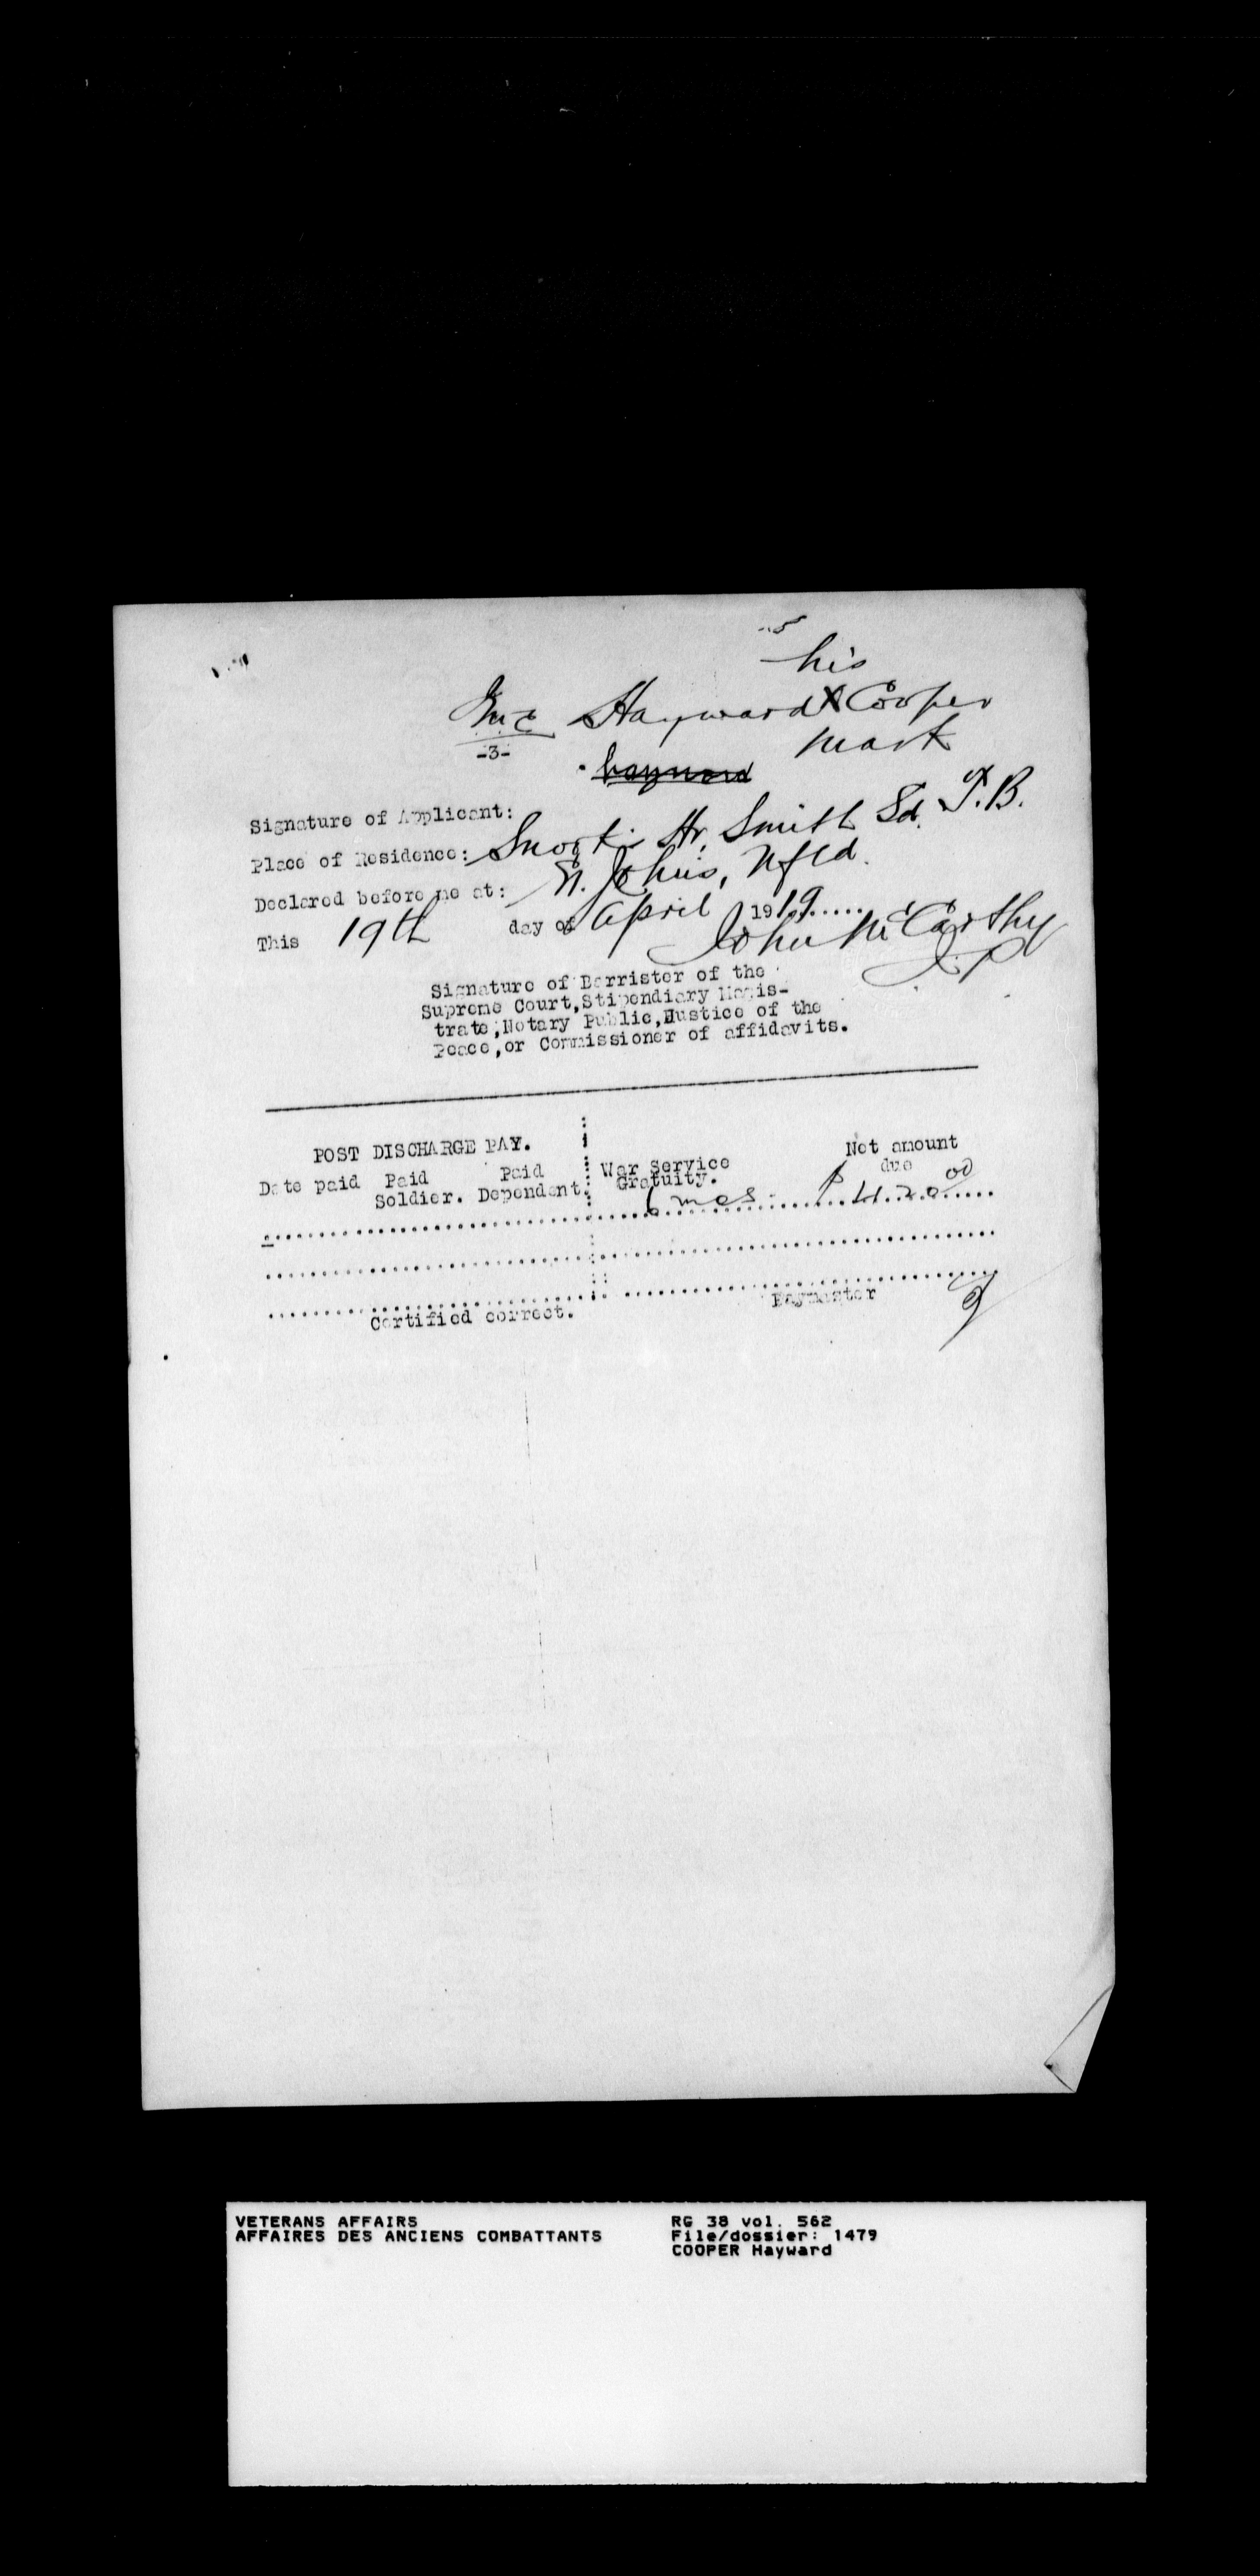 his
Hayward X Cooper
mark
-3-
hayward
Signature of Applicant:
Place of Residence: Snook's Hr. Smith Sd. T.B.
Declared before me at: St. John's, Nfld.
This 19th day of April 1919.....
John McCarthy
J.P.
Signature of Barrister of the
Supreme Court,Stipendiary Magis-
trate,Notary Public,Justice of the
Peace,or Commissioner of affidavits.
POST DISCHARGE PAY.
Date paid Paid Soldier. Paid Dependent.
War Service Gratuity.
Net amount due
6 mos. $ 420.00
Certified correct.
Paymaster
VETERANS AFFAIRS
AFFAIRES DES ANCIENS COMBATTANTS
RG 38 vol. 562
File/dossier: 1479
COOPER Hayward